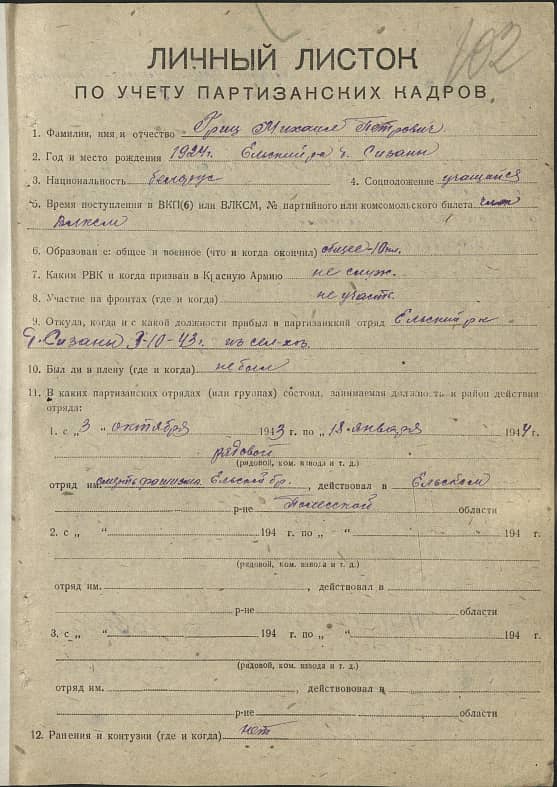 102
ЛИЧНЫЙ ЛИСТОК
ПО УЧЕТУ ПАРТИЗАНСКИХ КАДРОВ
1. Фамилия, имя и отчество Гриц Михаил Петрович
2. Год и место рождения 1924г. Ельский р-н д. Сизаны
3. Национальность белорус 4. Соцположение учащийся
5. Время поступления в ВКП(б) или ВЛКСМ, № партийного или комсомольского билета член
ВЛКСМ
6. Образование: общее и военное (что и когда окончил) общее-10кл.
7. Каким РВК и когда призван в Красную Армию не служ.
8. Участие на фронтах (где и когда) не участ.
9. Откуда, когда и с какой должности прибыл в партизанский отряд Ельский р-н
д. Сизаны 3-10-43г. из сел-хоз.
10. Был ли в плену (где и когда) не был
11. В каких партизанских отрядах (или группах) состоял, занимаемая должность и район действия
отряда:
1. с „3„ октября 1943 г. по „18„ января 1944 г.
рядовой
(рядовой, ком. взвода и т. д.)
отряд им. смерть фашизма Ельской бр., действовал в Ельском
р-не Полесской области
2. с „ “ 194 г. по „ “ 194 г.
(рядовой, ком. взвода и т. д.)
отряд им. , действовал в
р-не области
3. с „ “ 194 г. по „ “ 194 г.
(рядовой, ком. взвода и т. д.)
отряд им. , действовал в
р-не области
12. Ранения и контузии (где и когда) нет